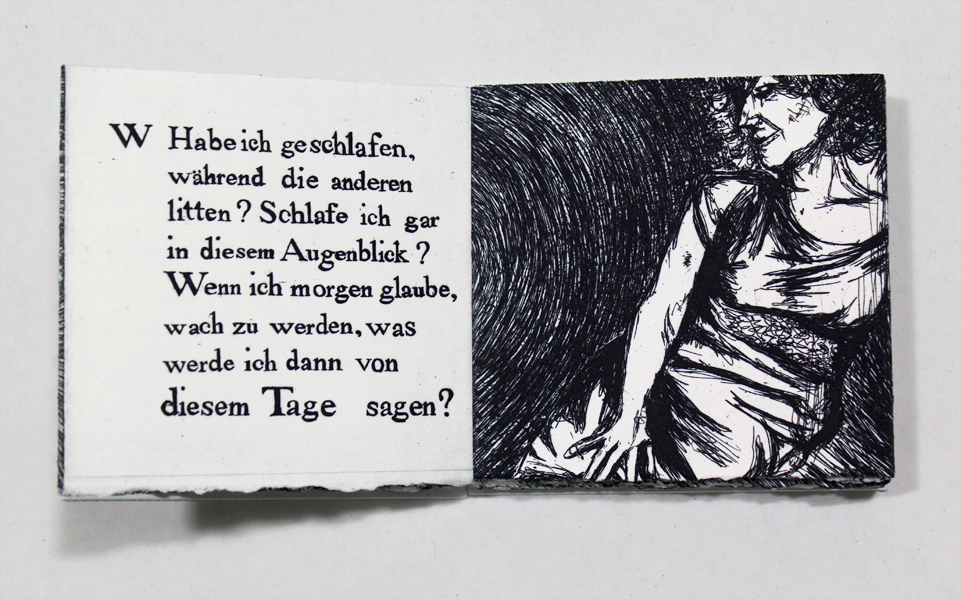 W Habe ich geschlafen,
während die anderen
litten? Schlafe ich gar
in diesem Augenblick?
Wenn ich morgen glaube,
wach zu werden, was
werde ich dann von
diesem Tage sagen?